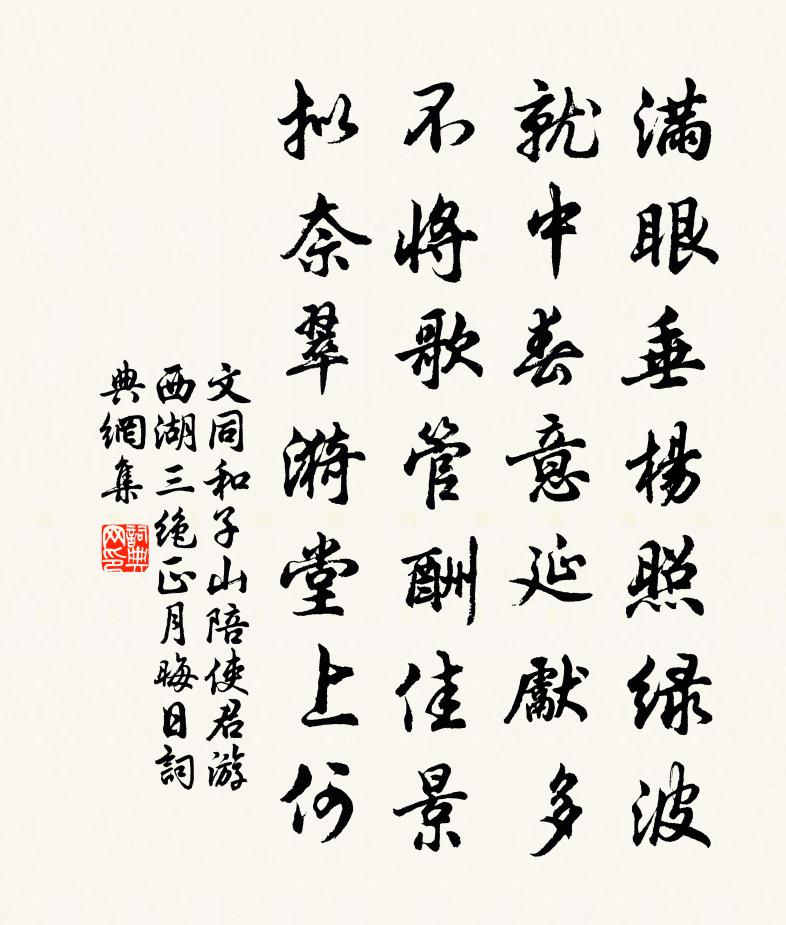 滿眼垂楊照緑波
就中春意延獻多
不將歌管酬佳景
拟奈翠漪堂上何
文同和子山陪使君游
西湖三绝正月晦日詞
典網集
詞典网印